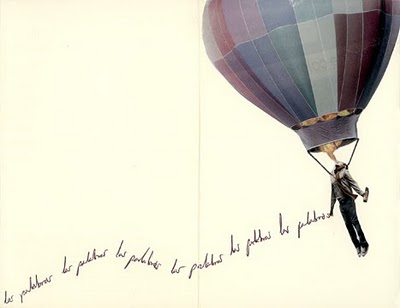 las palabras las palabras las palabras las palabras las palabras las palabras